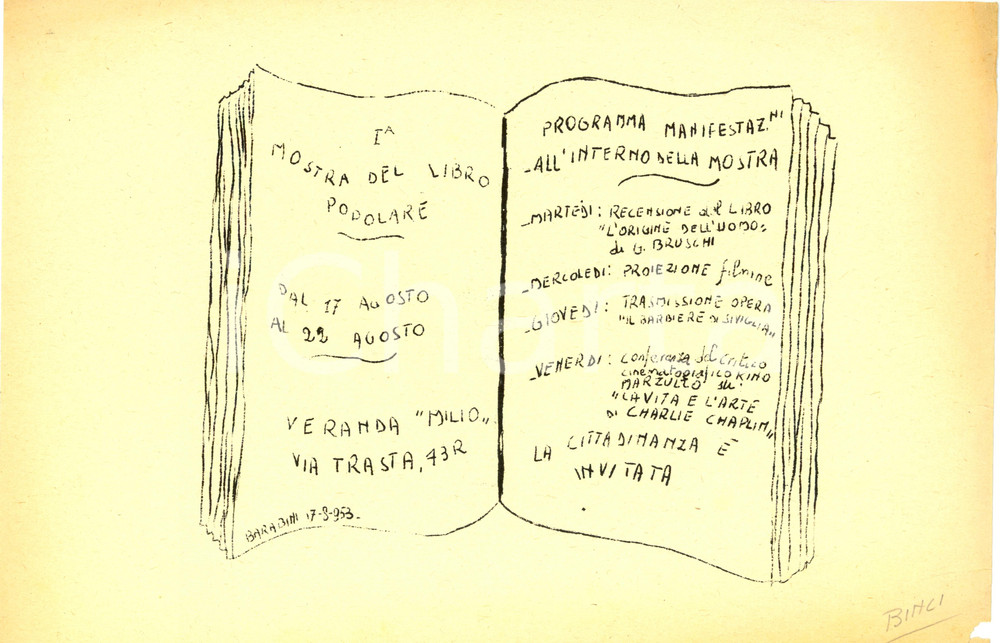 Iᴬ
MOSTRA DEL LIBRO
POPOLARE
DAL 17 AGOSTO
AL 22 AGOSTO
VERANDA "MILIO"
VIA TRASTA, 43R
BARABINI 17-8-953-
PROGRAMMA MANIFESTAZ.NI
-ALL'INTERNO DELLA MOSTRA
-MARTEDÌ: RECENSIONE del LIBRO
"L'ORIGINE DELL'UOMO"
di G. BRUSCHI
-MERCOLEDÌ: PROIEZIONE filmine
-GIOVEDÌ: TRASMISSIONE OPERA
"IL BARBIERE DI SIVIGLIA"
-VENERDÌ: Conferenza del critico
cinematografico KINO
MARZULLO su:
"LA VITA E L'ARTE
DI CHARLIE CHAPLIN"
LA CITTADINANZA È
INVITATA
BINCI
Charta